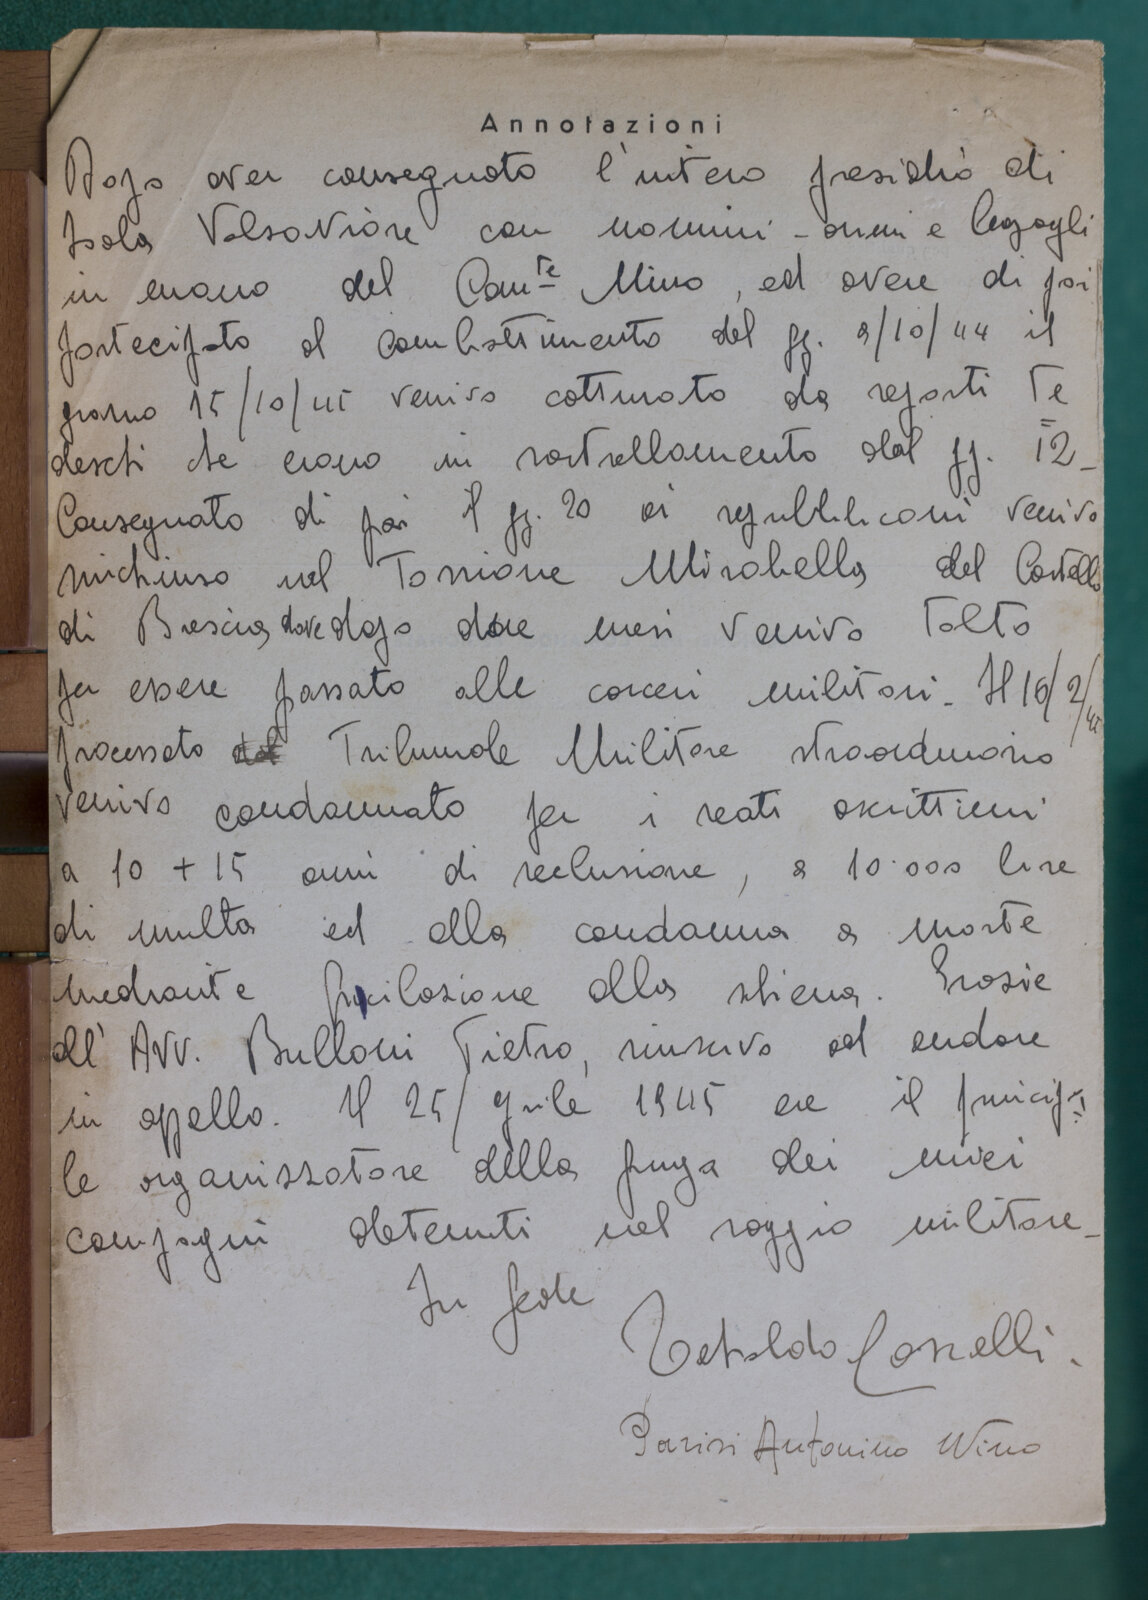 Annotazioni
Dopo aver consegnato l'intero presidio di
Isola Valsaviore con uomini - armi e bagagli
in mano del Com.te Nino, ed avere di poi
partecipato al combattimento del gg. 2/10/44 il
giorno 15/10/45 venivo catturato da reparti Te
deschi che erano in rastrellamento dal gg. 12 -
Consegnato di poi il gg. 20 ai repubblicani venivo
rinchiuso nel Torrione Mirabella del Castello
di Brescia, dove dopo due mesi venivo tolto
per essere passato alle carceri militari. Il 16/2/45
processato dal Tribunale Militare straordinario
venivo condannato per i reati ascrittimi
a 10 + 15 anni di reclusione, a 10.000 lire
di multa ed alla condanna a morte
mediante fucilazione alla schiena. Grazie
all' Avv. Bulloni Pietro, riuscivo ad andare
in appello. Il 25/Aprile 1945 ero il principa
le organizzatore della fuga dei miei
compagni detenuti nel raggio militare -
In fede
Tebaldo Casselli.
Parisi Antonino Nino